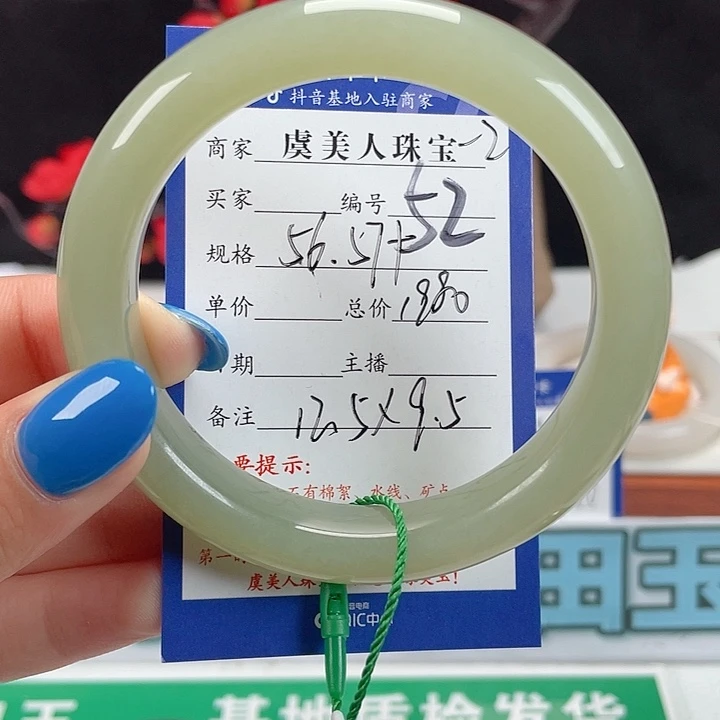 抖音基地入驻商家
商家 虞美人珠宝-2
买家 编号 52
规格 56.57+
单价 总价 1980
期 主播
备注 12.5×9.5
要提示:
有棉絮、水线、矿点
第一
虞美人珠
田玉
基地质检发货